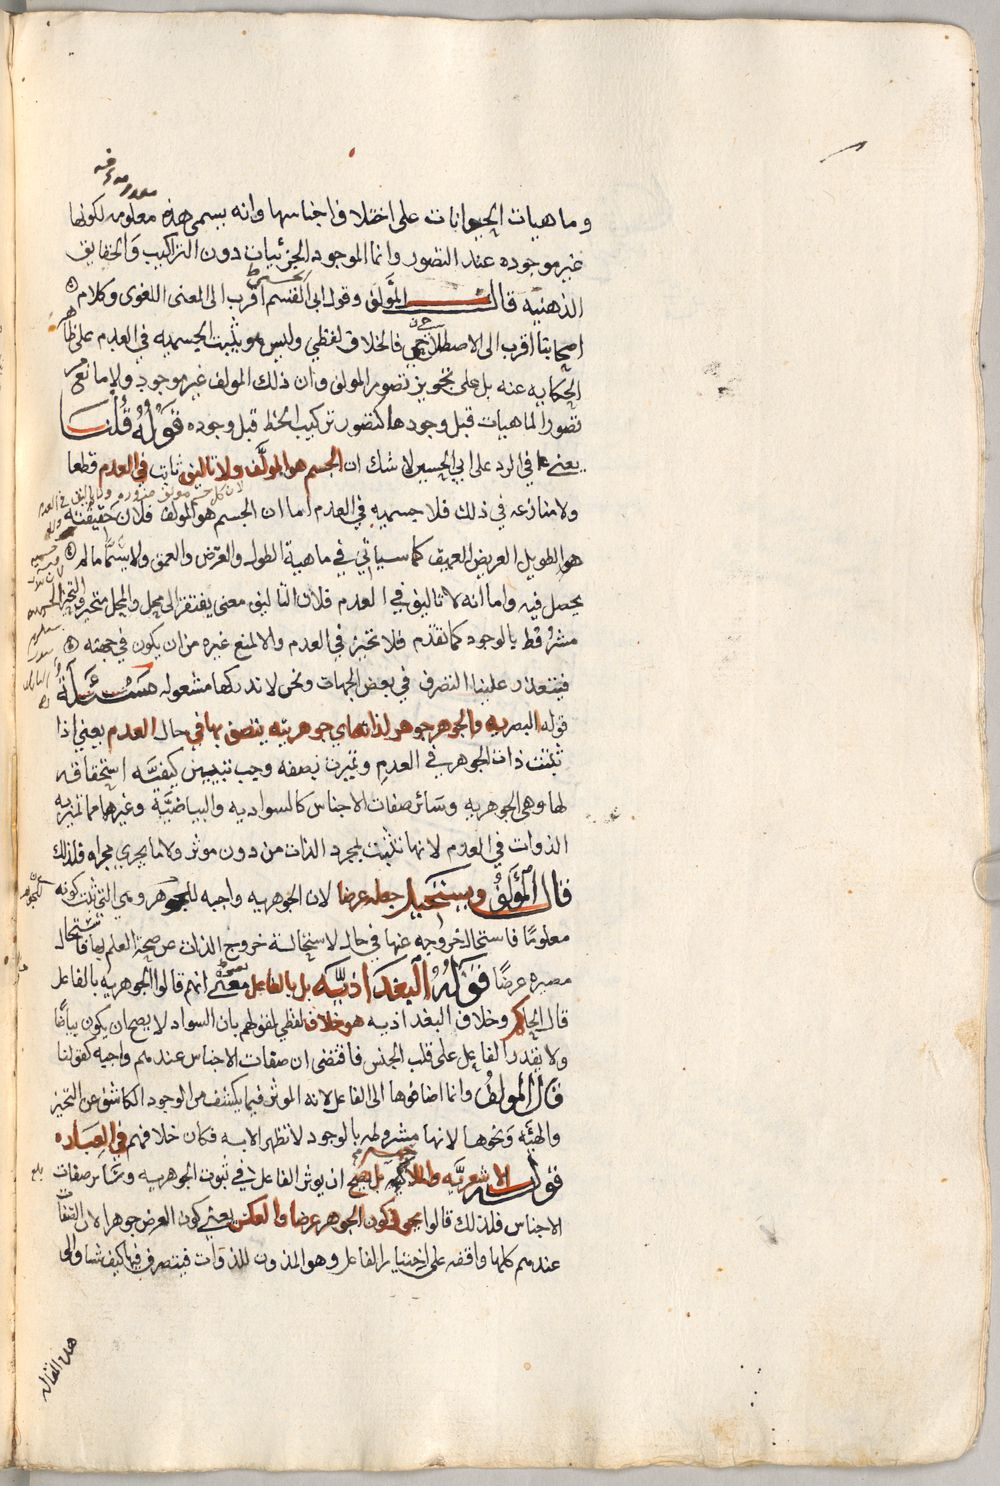 وماهيات الحيوانات على اختلاف اجناسها وانه يسمى هذه معلومه لكونها
غير موجوده عند التصور وانما الموجود الجزئيات دون التراكيب والحقايق
الذهنيه قال المؤلف وقول ابي القسم اقرب الى المعنى اللغوي وكلام
اصحابنا اقرب الى الاصطلاحي فالخلاف لفظي وليس هو يثبت الجسميه في العدم على
الحكايه عنه بل على تجويز تصور المولف وان ذلك المولف غير موجود ولا مانع من
تصور الماهيات قبل وجودها كتصور تركيب الخط قبل وجوده قوله قلنا
يعني في الرد على ابي الحسين لا شك ان الجسم هو المؤلف ولا تاليف ثابت في العدم قطعا
ولا منازعه في ذلك فلا جسميه في العدم اما ان الجسم هو المولف فلان حقيقته
هو الطويل العريض العميق كما سياتي في ماهية الطول والعرض والعمق ولا
يحصل فيه واما انه لا تاليف في العدم فلان التاليف معنى يفتقر الى محل والمحل متحيز والتحيز
مشروط بالوجود كما تقدم فلا تحيز في العدم والا لمنع غيره من ان يكون في جهته
فيتعذر علينا التصرف في بعض الجهات ونحن لا ندركها مشغوله مسئلة
قوله البصريه والجوهر جوهر لذاته اي جوهريته يتصف بها في حال العدم يعني اذا
ثبتت ذات الجوهر في العدم وتميزت بصفه وجب تبيين كيفية استحقاقه
لها وهي الجوهريه وسائر صفات الاجناس كالسواديه والبياضية وغيرها مما تميز به
الذوات في العدم لانها تثبت لمجرد الذات من دون موثر ولا ما يجري مجراه فلذلك
قال المؤلف ويستحيل جعله عرضا لان الجوهريه واجبه للجوهر وهي التي كونه
معلوما فاستحال خروجه عنها في حال لاستحالة خروج الذات عن صحة العلم بها فاستحال
مصيره عرضا قوله البغداذية بل بالفاعل يعني انهم قالوا الجوهريه بالفاعل
قال الحاكم وخلاف البغداذيه هو خلاف لفظي لقولهم بان السواد لا يصح ان يكون بياضا
ولا يقدر الفاعل على قلب الجنس فاقتضى ان صفات الاجناس عندهم واجبه كقولنا
قال المؤلف وانما اضافوها الى الفاعل لانه الموثر فيما يكشف من الوجود الكاشف عن التحيز
والهيئة ونحوها لانها مشروطه بالوجود لا تظهر الا به فكان خلافهم في العباره
قوله الاشعرية بل يصح ان يوثر الفاعل في ثبوت الجوهريه وسائر صفات
الاجناس فلذلك قالوا يجوز كون الجوهر عرضا والعكس يعني كون العرض جوهرا لان الصفات
عندهم كلها واقفه على اختيار الفاعل وهو المذوت للذوات فيتصرف فيها كيف شا والى
هذه المقاله